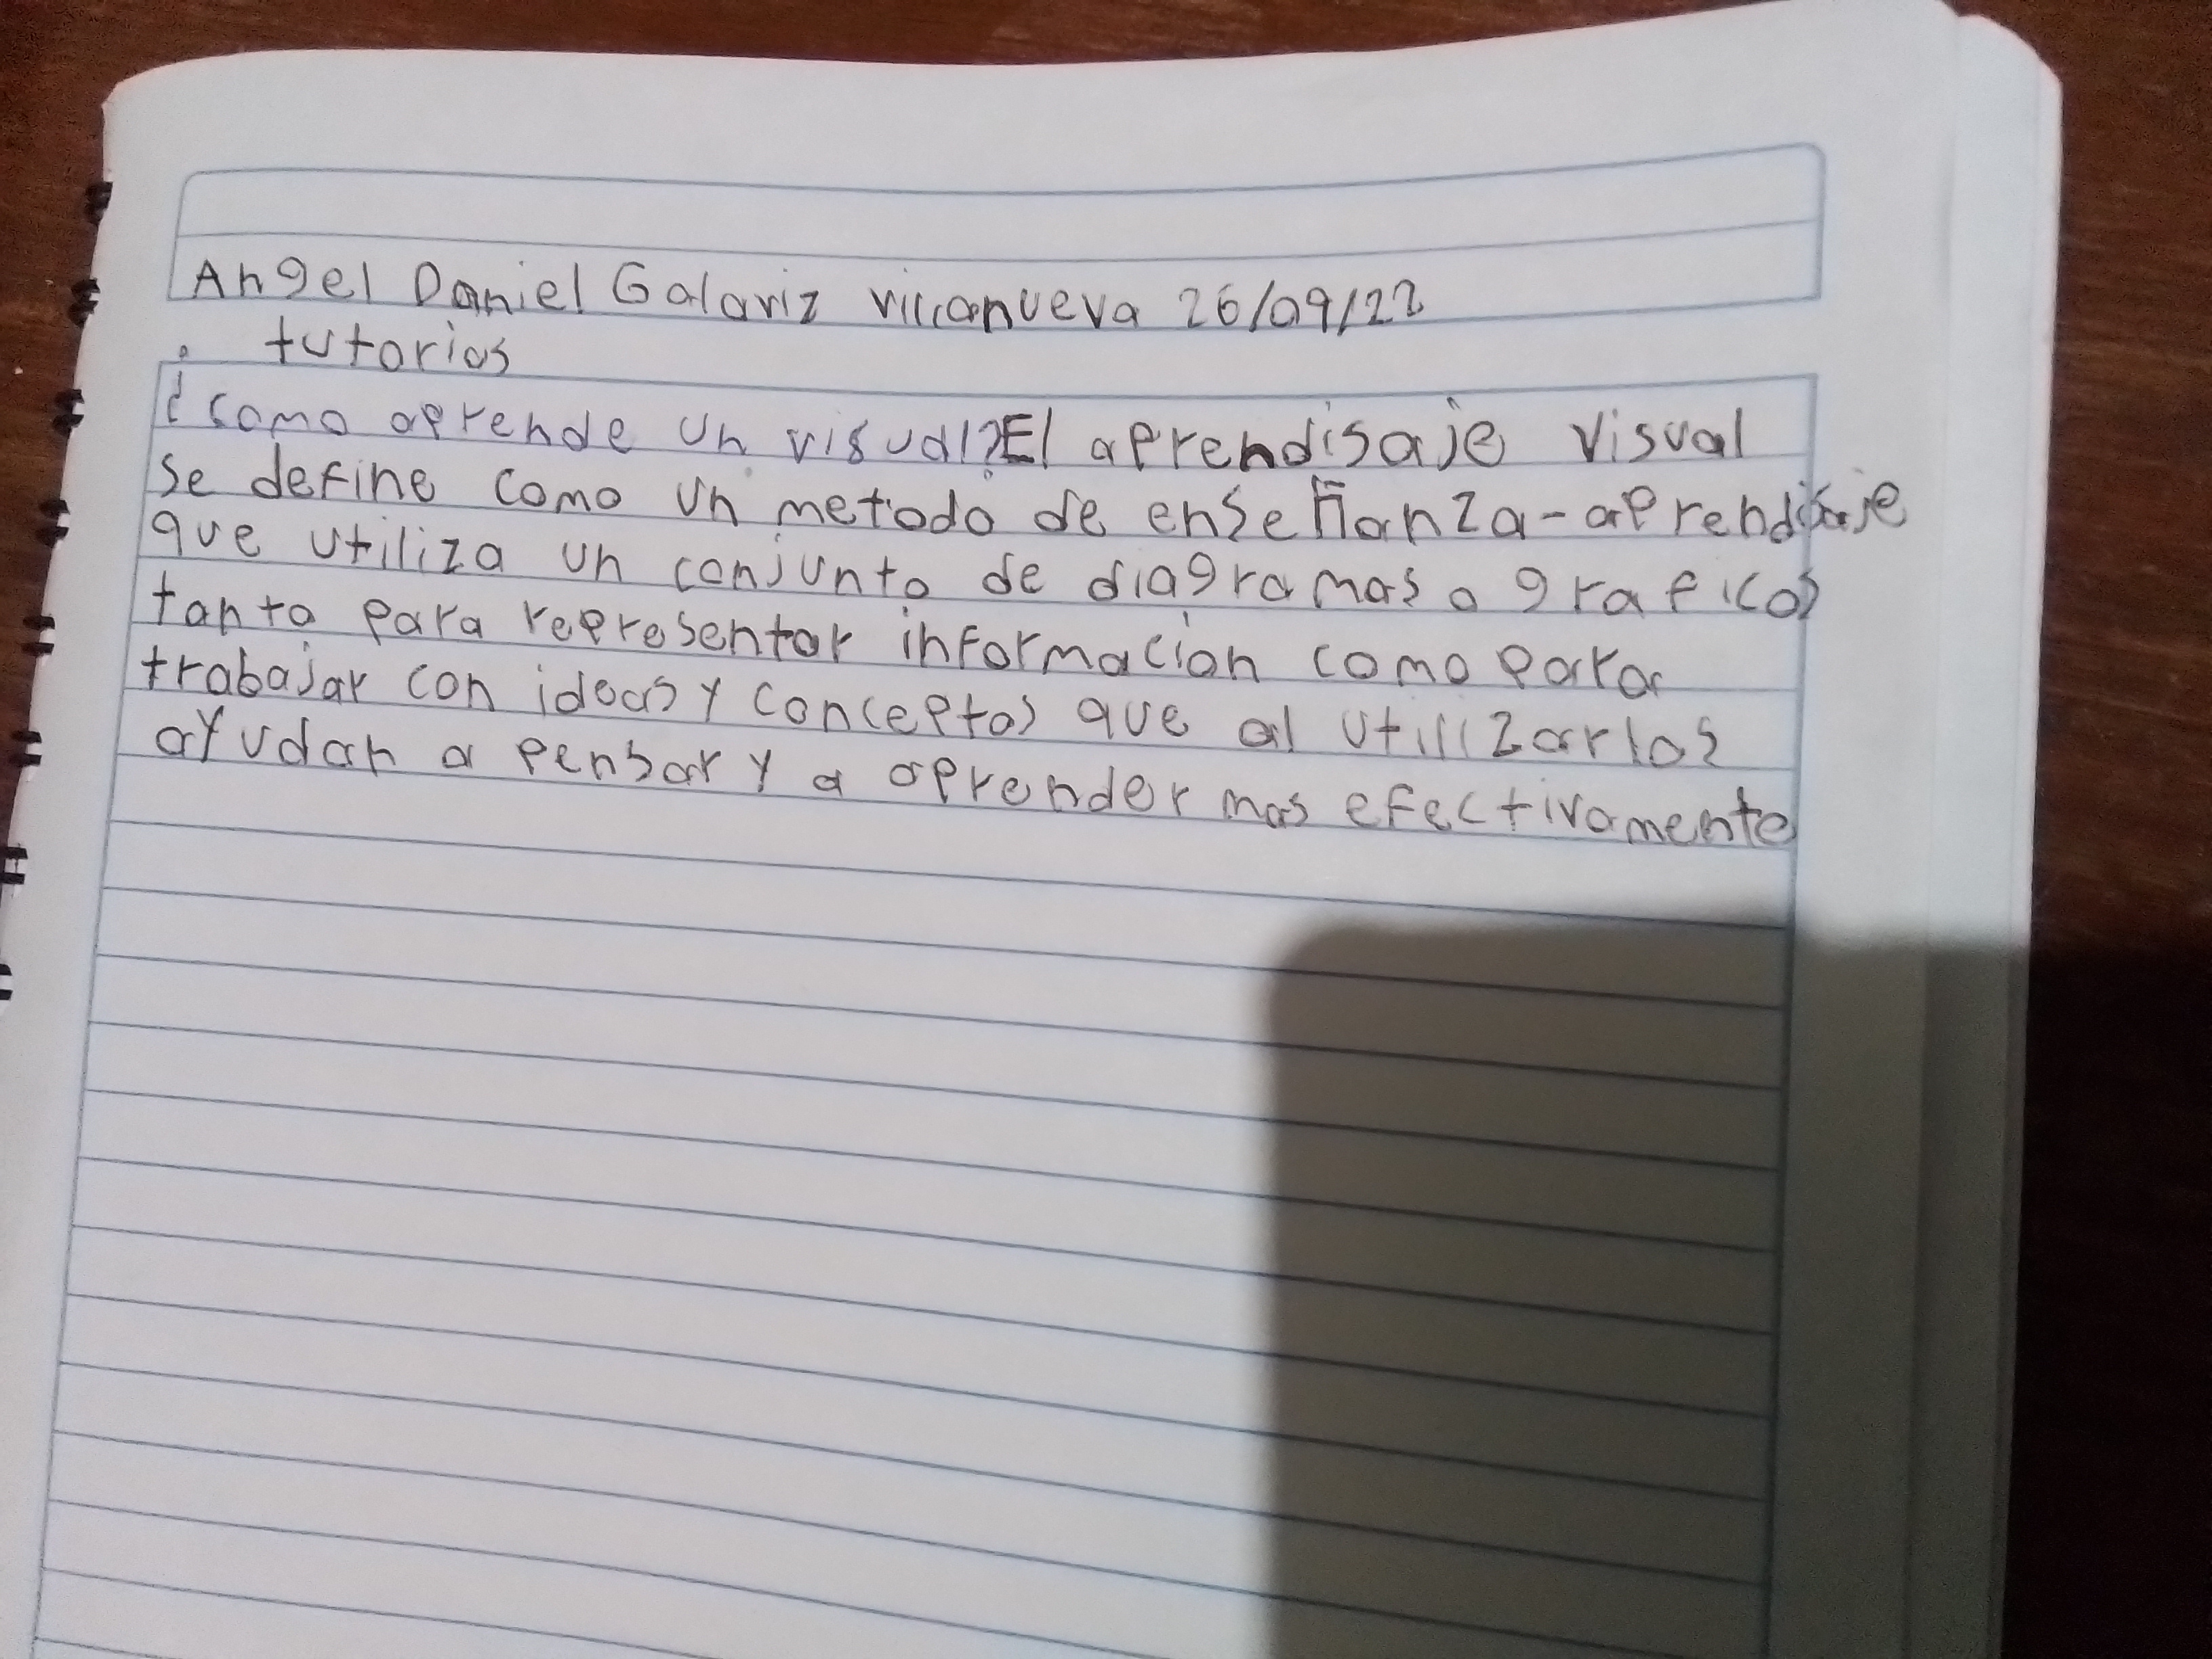 Angel Daniel Galaviz villanueva 26/09/22
tutorias
¿como aprende un visual?El aprendisaje visual
se define como un metodo de enseñanza-aprendisaje
que utiliza un conjunto de diagramas o graficos
tanto para representar informacion como para
trabajar con ideas y conceptos que al utillizarlos
ayudan a pensar y a aprender mas efectivamente